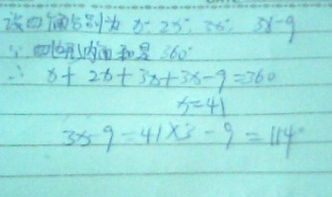 设四角分别为 x, 2x, 3x, 3x-9
∵ 四边形内角和是 360°
∴ x+2x+3x+3x-9=360
x=41
3x-9=41×3-9=114°